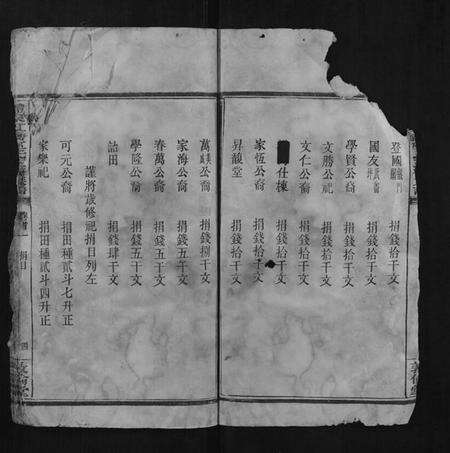 登國
捐錢拾千文
國友
捐錢拾千文
學賢公裔
捐錢拾千文
文勝公祀
捐錢拾千文
文仁公裔
捐錢拾千文
仕棟
捐錢拾千文
家恆公裔
捐錢拾千文
昇馥堂
捐錢拾千文
萬公裔
捐錢捌千文
家海公裔
捐錢五千文
春萬公裔
捐錢五千文
學隆公裔
捐錢五千文
詁田
捐錢肆千文
謹將歲修祀捐目列左
可元公裔
捐田種貳斗七升正
家樂祀
捐田種貳斗四升正
捐目
四